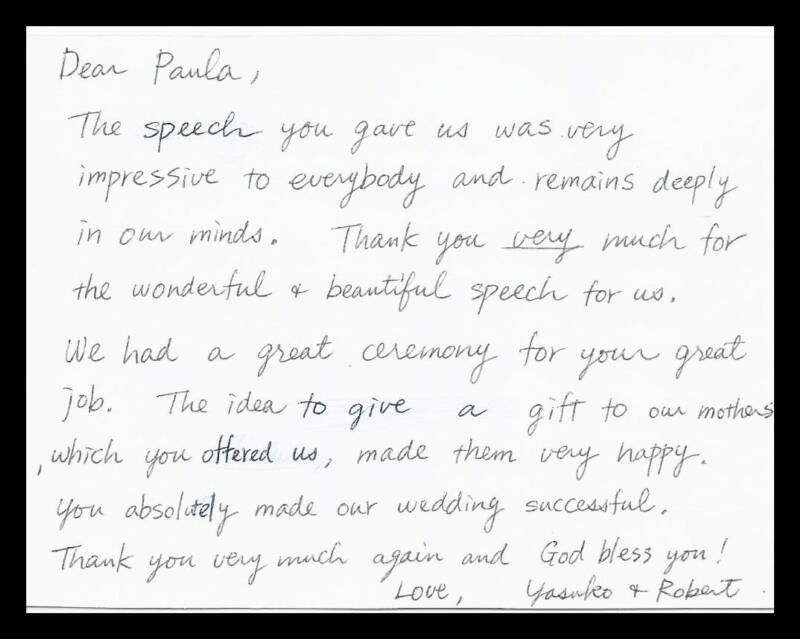 Dear Paula,
The speech you gave us was very
impressive to everybody and remains deeply
in our minds. Thank you very much for
the wonderful & beautiful speech for us.
We had a great ceremony for your great
job. The idea to give a gift to our mothers
, which you offered us, made them very happy.
You absolutely made our wedding successful.
Thank you very much again and God bless you!
Love, Yasuko & Robert.